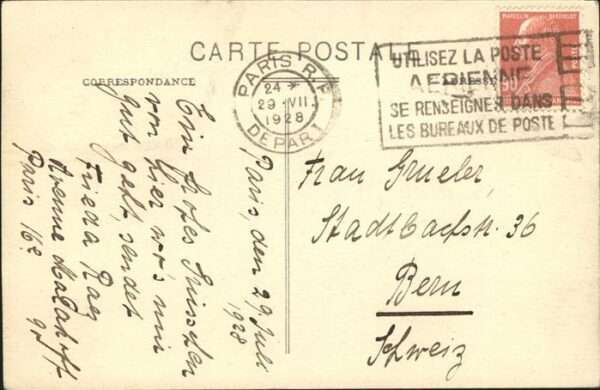 CARTE POSTALE
CORRESPONDANCE
MARCELIN BERTHELOT
90
PARIS R.P.
24 *
29 • VII
1928
DEPART
UTILISEZ LA POSTE
AERIENNE
SE RENSEIGNER DANS
LES BUREAUX DE POSTE
Paris, den 29. Juli
1928
Ein
von hier, wo's mir
gut geht, sendet
Frieda
Avenue Malakoff
Paris 16e
Frau
Stadtbachstr. 36
Bern
Schweiz